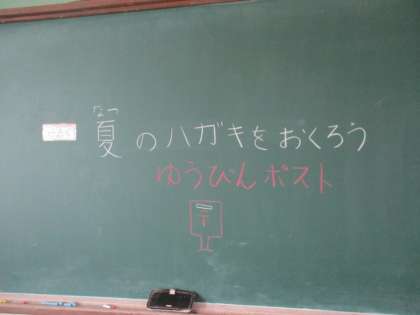 なつ
夏のハガキをおくろう
ゆうびんポスト
〒